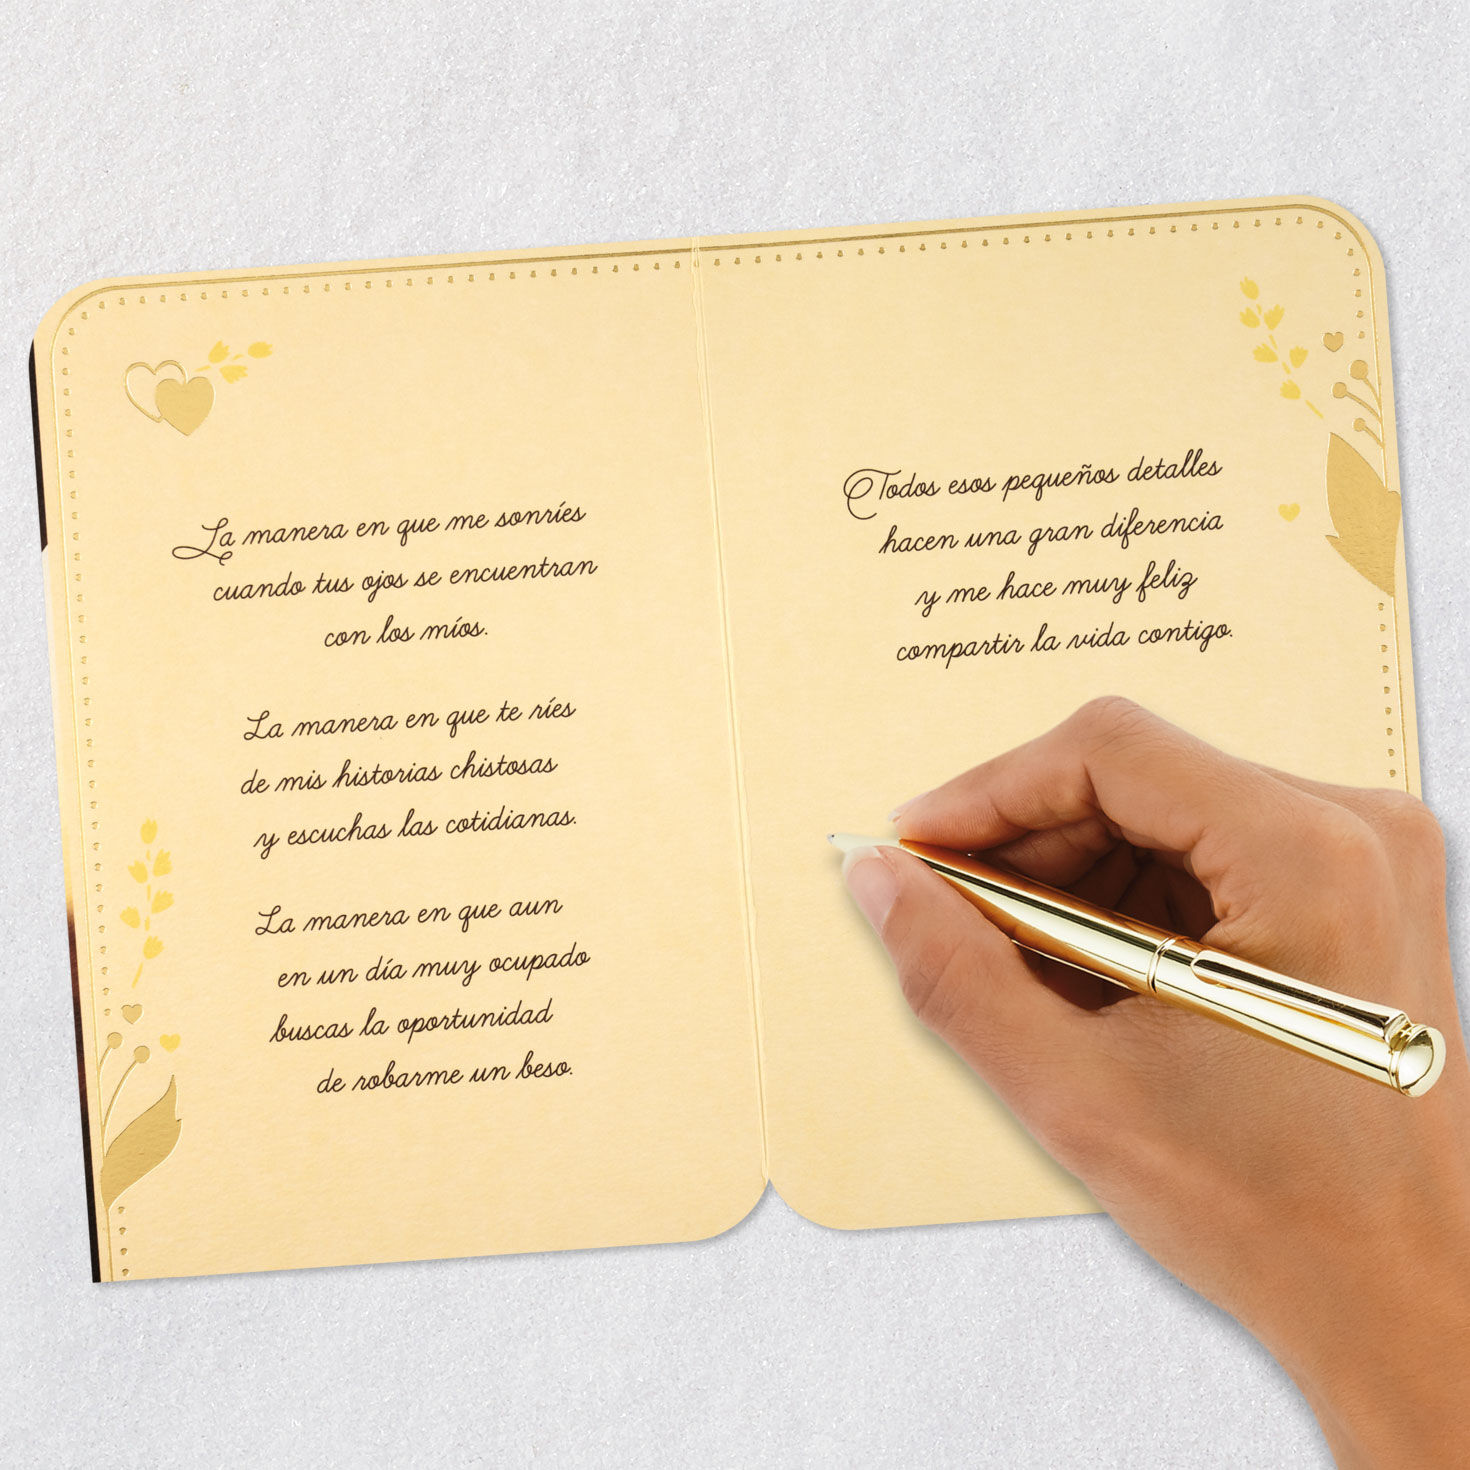 La manera en que me sonríes
cuando tus ojos se encuentran
con los míos.
La manera en que te ríes
de mis historias chistosas
y escuchas las cotidianas.
La manera en que aun
en un día muy ocupado
buscas la oportunidad
de robarme un beso.
Todos esos pequeños detalles
hacen una gran diferencia
y me hace muy feliz
compartir la vida contigo.